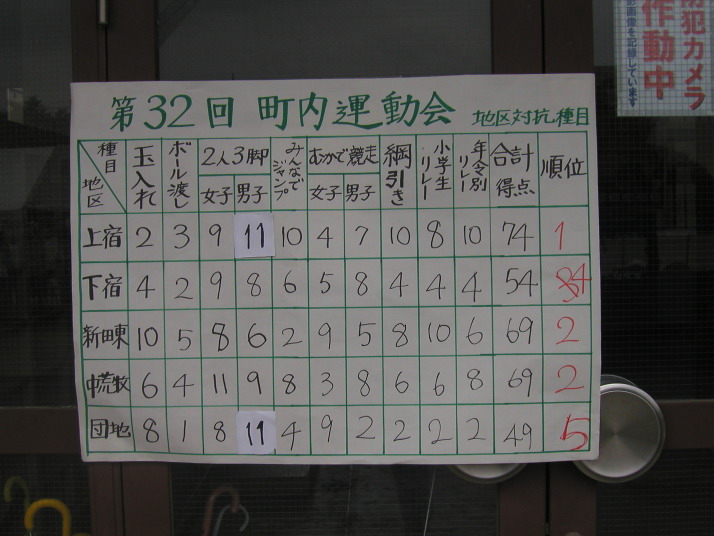 防犯カメラ
作動中
録画映像を記録しています
第32回 町内運動会 地区対抗種目
種目 地区 玉入れ ボール渡し 2人3脚 女子 男子 みんなでジャンプ むかで競走 女子 男子 綱引き 小学生リレー 年令別リレー 合計得点 順位
上宿 2 3 9 11 10 4 7 10 8 10 74 1
下宿 4 2 9 8 6 5 8 4 4 4 54 4
新田東 10 5 8 6 2 9 5 8 10 6 69 2
中荒牧 6 4 11 9 8 3 8 6 6 8 69 2
団地 8 1 8 11 4 9 2 2 2 2 49 5